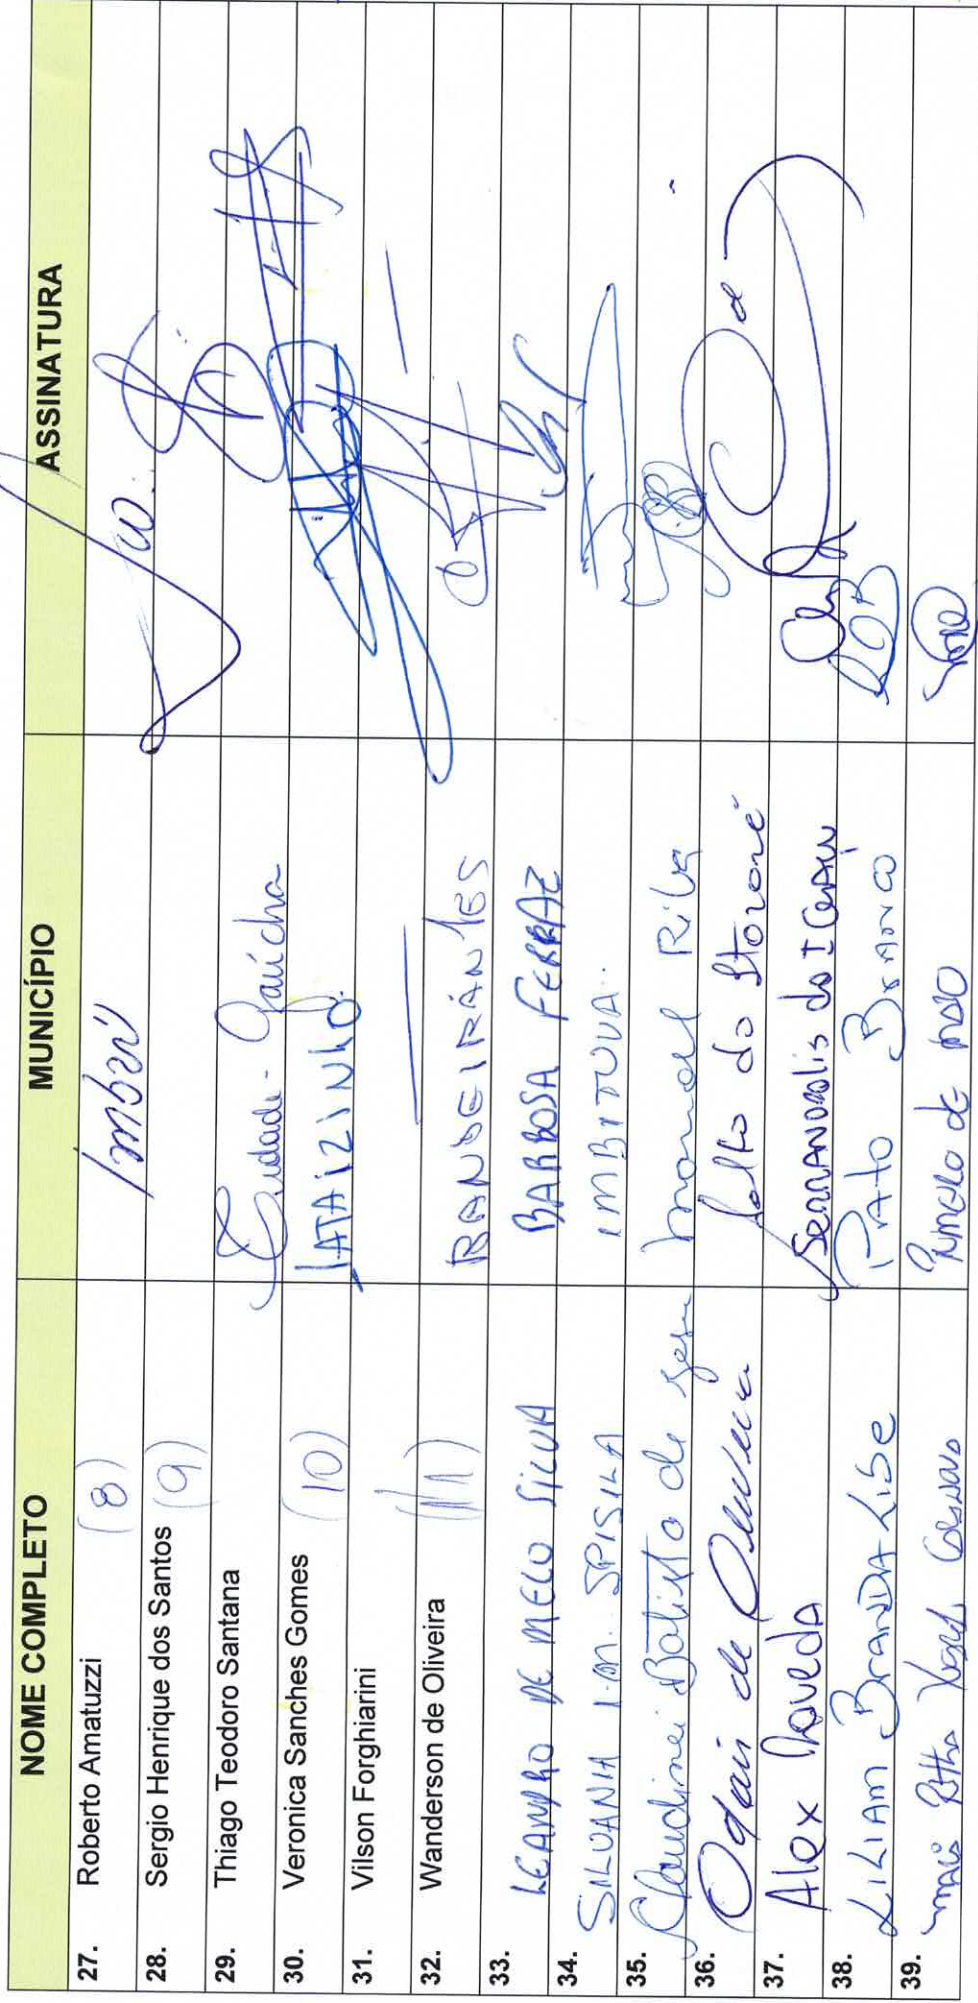 NOME COMPLETO MUNICÍPIO ASSINATURA
27. Roberto Amatuzzi (8) Imbaú
28. Sergio Henrique dos Santos (9)
29. Thiago Teodoro Santana Cidade-Gaúcha
30. Veronica Sanches Gomes (10) JATAIZINHO
31. Vilson Forghiarini
32. Wanderson de Oliveira (11) BANDEIRANTES
33. LEANDRO DE MELO SILVA BARBOSA FERRAZ
34. SILVANIA I.M. SPISILA IMBITUVA
35. Claudinei Batista de Manoel Ribas
36. Odair de Oliveira Salto do Itararé
37. Alex SERRANÓPOLIS do IGUAÇU
38. LILIAM BRANDALISE PATO BRANCO
39.